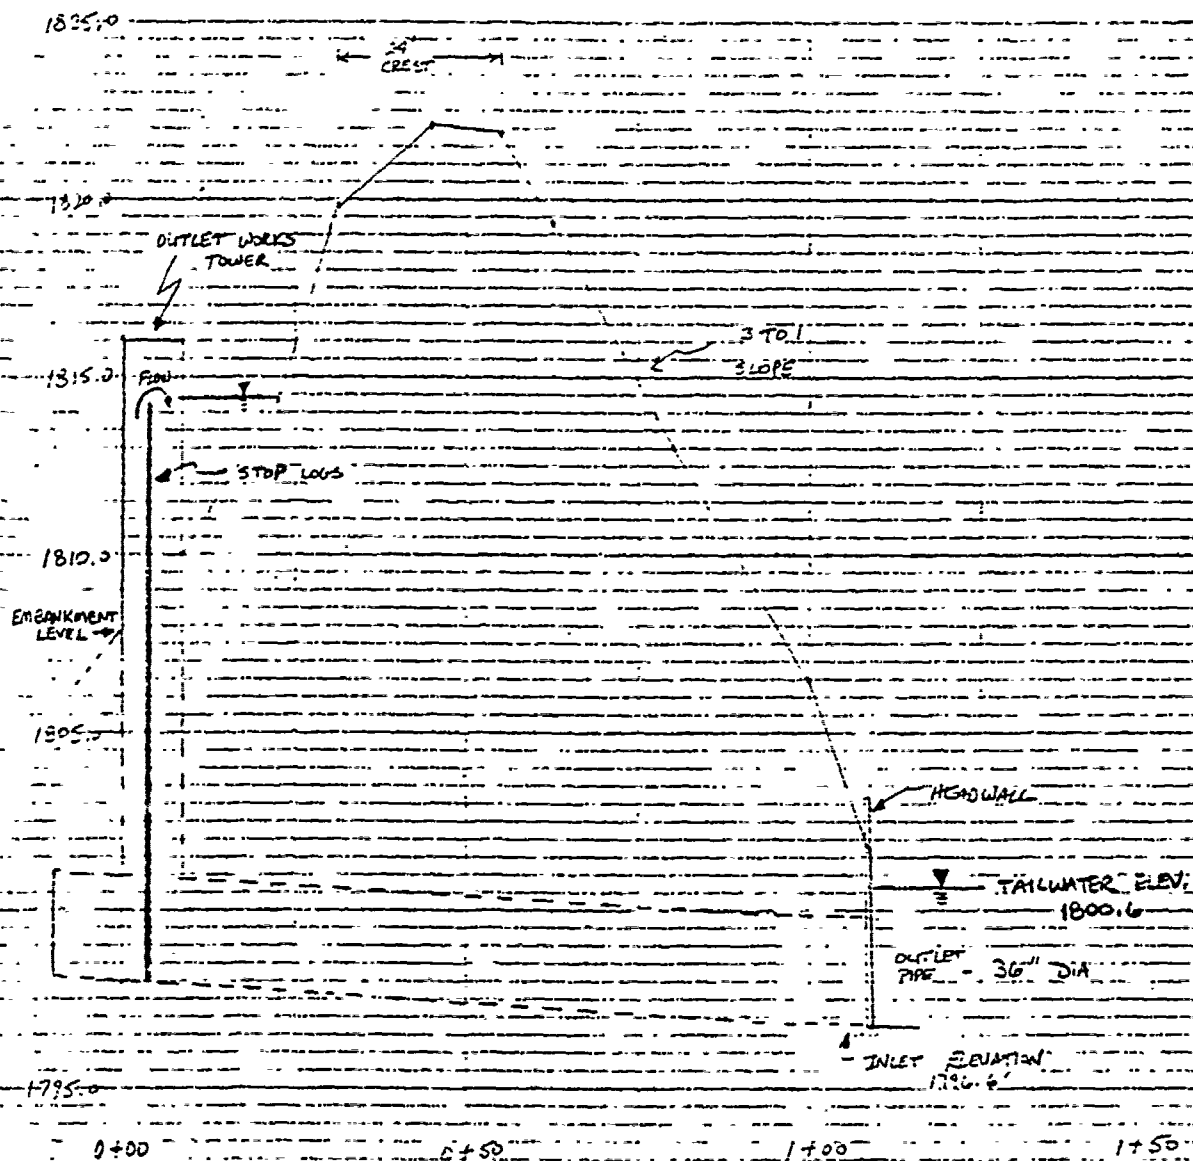 1825.0
24
CREST
1820.0
OUTLET WORKS
TOWER
3 TO 1
SLOPE
1815.0
FLOW
STOP LOGS
1810.0
EMBANKMENT
LEVEL
1805.0
HEADWALL
TAILWATER ELEV.
1800.6
OUTLET
PIPE - 36" DIA
INLET ELEVATION
1795.0
0+00
0+50
1+00
1+50